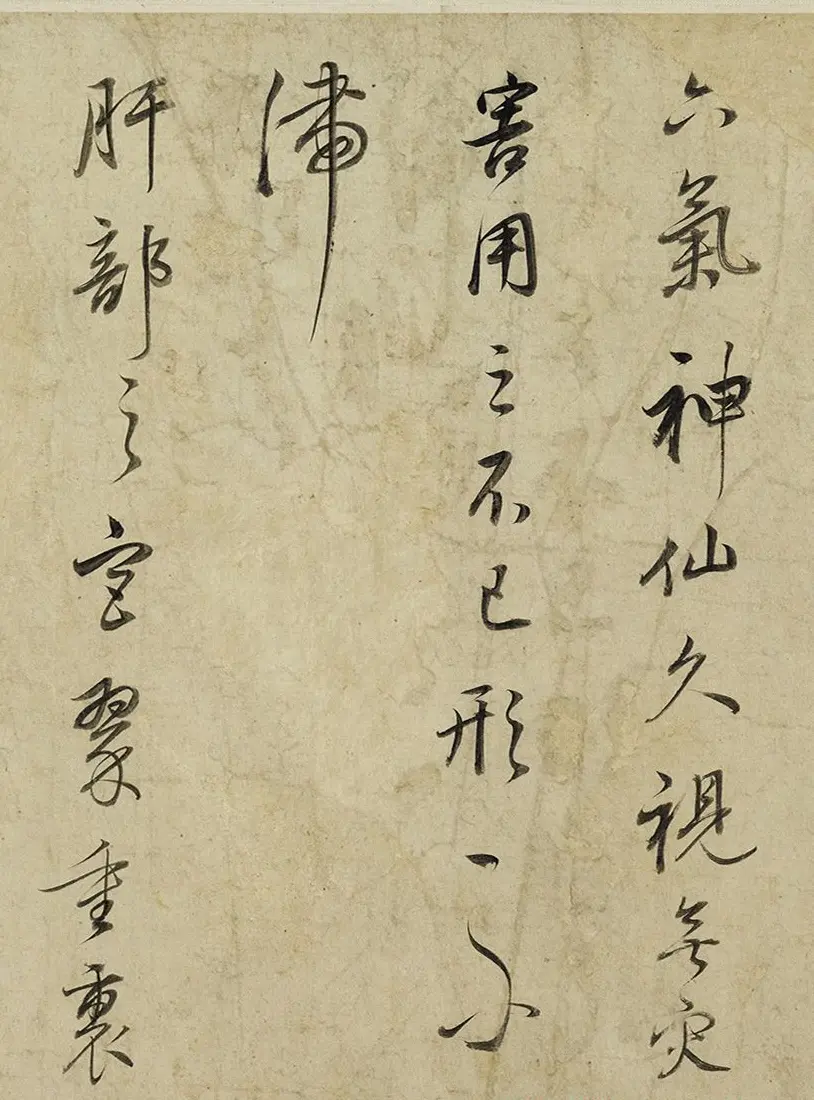 六氣神仙久視無灾
害用之不已形不
滯
肝部之宮翠重裏